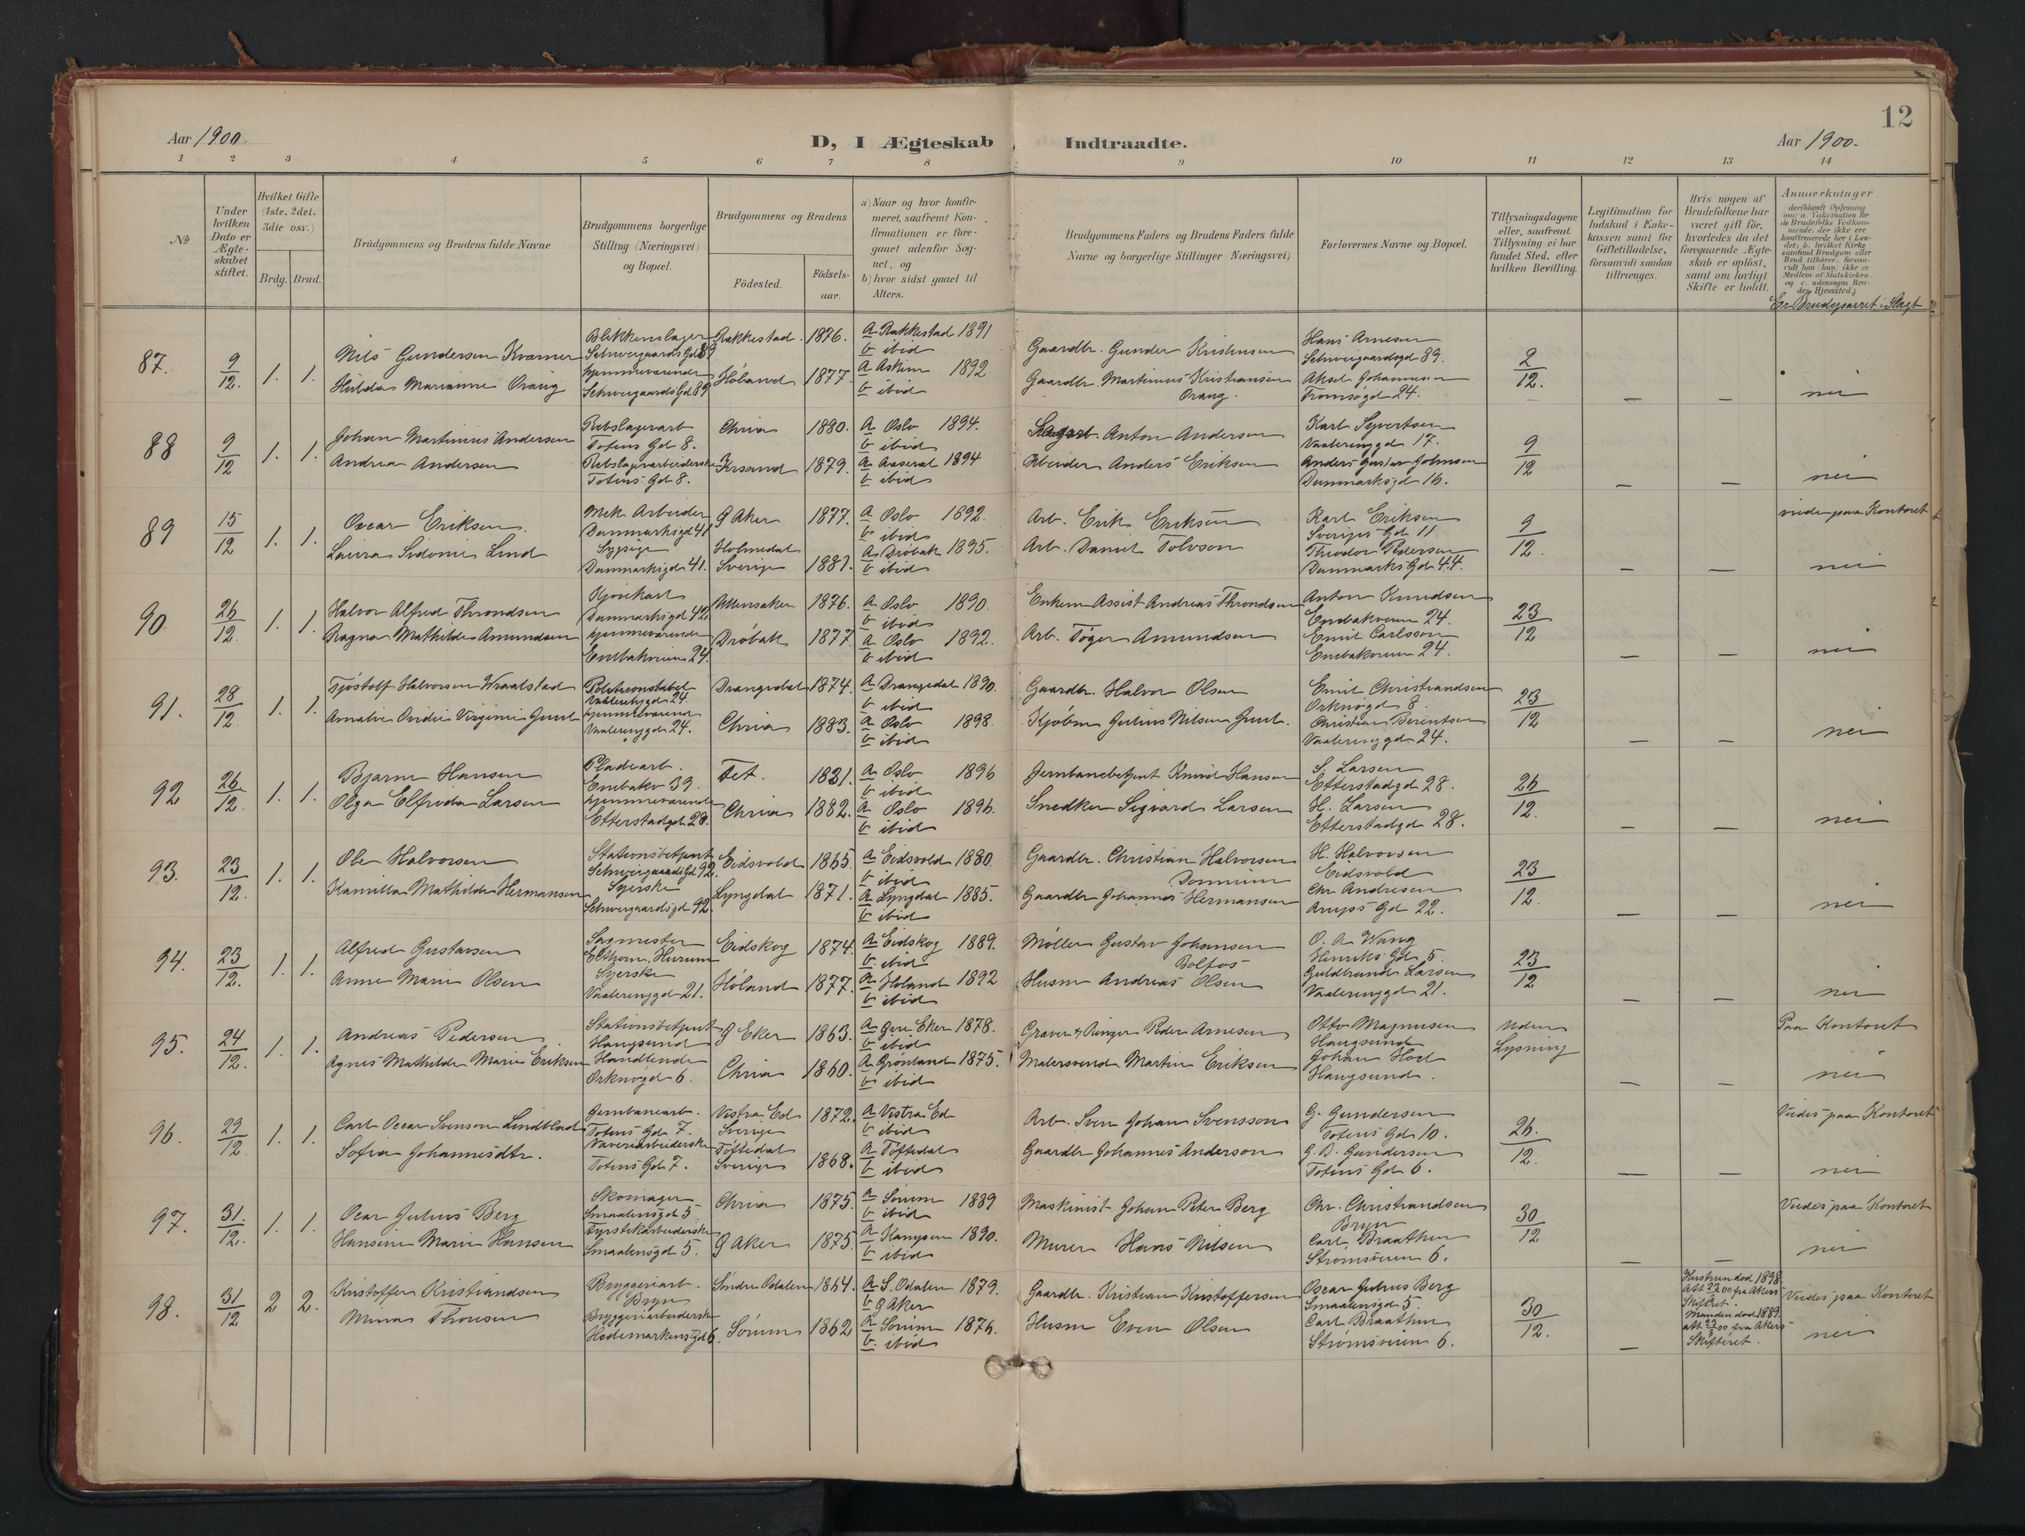 12
Aar 1900.
D, I Ægteskab Indtraadte.
Aar 1900.
1 2 3 4 5 6 7 8 9 10 11 12 13 14
No
Under hvilken Dato er Ægteskabet stiftet.
Hvilket Gifte (1ste, 2det, 3die osv.)
Brdg. Brud.
Brudgommens og Brudens fulde Navne
Brudgommens borgerlige Stilling (Næringsvei) og Bopæl.
Brudgommens og Brudens
Fødested.
Fødselsaar.
a) Naar og hvor konfirmeret, saafremt Konfirmationen er foregaaet udenfor Sognet, og
b) hvor sidst gaaet til Alters.
Brudgommens Faders og Brudens Faders fulde Navne og borgerlige Stillinger Næringsvei)
Forlovernes Navne og Bopæl.
Tillysningsdagene eller, saafremt Tillysning ei har fundet Sted, efter hvilken Bevilling.
Legitimation for Indskud i Enkekassen samt for Giftetilladelse, forsaavidt saadan tiltrænges.
Hvis nogen af Brudefolkene har været gift før, hvorledes da det foregaaende Ægteskab er opløst, samt om lovligt Skifte er holdt.
Anmerkninger
Er Brudeparret i Slægt
87. 9/12 1. 1.
Nils Gundersen Kværner
Hilda Marianne Oraug
Blikkenslager
Schweigaards Gd 89
hjemmeværende
Schweigaards Gd 89
Rakkestad 1876.
Høland 1877.
a Rakkestad 1891
b ibid
a Askim 1892
b ibid
Gaardbr. Gunder Kristensen
Gaardbr Martinius Kristiansen
Oraug.
Hans Arnesen
Schweigaardsgd 89.
Aksel Johannesen
Tromsøgd 24.
2/12. — — nei
88 9/12 1. 1.
Johan Martinius Andersen
Andrea Andersen
Rebslagerarb
Totens Gd 8.
Rebslagerarbeiderske
Totens Gd 8.
Chria 1880.
Krsand 1879.
a Oslo 1894.
b ibid
a Aaseral 1894
b ibid
Anton Andersen
Arbeider Anders Eriksen
Karl Syvertsen
Vaalerenggd 17.
Anders Gustav Johnsen
Danmarksgd 16.
9/12 — — nei
89 15/12 1. 1.
Oscar Eriksen.
Laura Sidonie Lind
Mek Arbeider
Danmarksgd 41
Sypige
Danmarksgd 41.
G Aker 1877.
Holmedal
Sverige 1881.
a Oslo 1892.
b ibid
a Drøbak 1895.
b ibid
Arb. Erik Eriksen
Arb. Daniel Tolvson
Karl Eriksen
Sveriges Gd 11.
Theodor Pedersen
Danmarks Gd 44.
9/12. — — viedes paa Kontoret
nei
90 26/12 1. 1.
Halvor Alfred Throndsen
Ragna Mathilde Amundsen
Kjørekarl
Danmarksgd 42.
hjemmeværende
Enebakveien 24.
Ullensaker 1876.
Drøbak 1877
a Oslo 1890.
b ibid
a Oslo 1892.
b ibid
Assist Andreas Throndsen
Arb. Tøger Amundsen
Anton Knudsen
Enebakveien 24.
Emil Carlsson
Enebakveien 24.
23/12 — — nei
91. 28/12 1. 1.
Tjøstolf Halvorsen Wraalstad
Amalie Ovidie Virginie Gunt
Politikonstabel
Vaalerenggd 24
hjemmeværende
Vaalerenggd 24.
Drangedal 1874.
Chria 1883.
a Drangedal 1890.
b ibid
a Oslo 1898.
b ibid
Gaardbr. Halvor Olsen
Kjøbm Julius Nilsen Gunt.
Emil Christiansen
Orknøgd 8.
Christian Berentsen
Vaalerenggd 24.
23/12 — — nei
92 26/12. 1. 1.
Bjarne Hansen
Olga Elfrida Larsen
Pladearb.
Enebakv 39.
hjemmeværende
Etterstadgd 28.
Fet. 1881.
Chria 1882.
a Oslo 1896
b ibid
a Oslo 1896.
b ibid
Jernbanebetjent Knud Hansen
Snedker Sigvard Larsen
S. Larsen
Etterstadgd 28.
H. Larsen
Etterstadgd 28.
26/12. — — nei
93. 23/12 1. 1.
Ole Halvorsen
Kamilla Mathilde Hermansen
Stationsbetjent
Schweigaards Gd 92.
Syerske
Schweigaardsgd 92.
Eidsvold 1865
Lyngdal 1871.
a Eidsvold 1880.
b ibid
a Lyngdal 1885.
b ibid
Gaardbr. Christian Halvorsen
Gaardbr Johannes Hermansen
H. Halvorsen
Eidsvold
Chr Andresen
Arups Gd 22.
23/12. — — nei
94. 23/12. 1. 1.
Alfred Gustavsen
Anne Marie Olsen
Sagmester
Hurum
Syerske
Vaalerenggd 21.
Eidskog 1874.
Høland 1877.
a Eidskog 1889.
b ibid
a Høland 1892
b ibid
Møller Gustav Johansen
Husm Andreas Olsen
O. A. Wang
Henriks Gd 5.
Guldbrand Larsen
Vaalerenggd 21.
23/12 — — nei
95. 24/12. 1. 1.
Andreas Pedersen
Agnes Mathilde Marie Eriksen
Stationsbetjent
Haugsund
Handlende
Orknøgd 6.
G Eker 1863.
Chria 1860.
a Øvre Eker 1878.
b ibid
a Grønland 1875.
b ibid
Graver & Ringer Peder Arnesen
Malersvend Martin Eriksen
Otto Magnusen
Haugsund
Johan Hoel
Haugsund.
uden
Lysning
— — Paa Kontoret
nei
96. 29/12. 1. 1.
Carl Oscar Svensson Lindblad
Sofia Johannesdtr.
Jernbanearb.
Totens Gd 7.
Væveriarbeiderske
Totens Gd 7.
Vestra Ed 1872.
Sverige
Töftedal
Sverige 1868.
a Vestra Ed
b ibid
a Töftedal
b ibid
Arb. Sven Johan Svensson
Gaardbr Johannes Anderson
G. Gundersen
Totens Gd 10.
G. B. Gundersen
Totens Gd 6.
26./12 — — Viedes paa Kontoret
nei
97. 31./12. 1. 1.
Ocar Julius Berg
Hansine Marie Hansen
Skomager
Smaalensgd 5
Fyrstikarbeiderske
Smaalensgd 5.
Chria 1875.
G Aker 1875.
a Sørum 1889
b ibid
a Kampen 1890.
b ibid
Maskinist Johan Peter Berg
Murer Hans Nilsen
Chr. Christiansen
Bryn
Carl Braathen
Strømsveien 6.
30/12 — — Viedes paa Kontoret
nei
98. 31/12 2 2.
Kristoffer Kristiansen
Mina Thoresen
Bryggeriarb.
Bryn
Bryggeriarbeiderske
Hedemarkensgd 6.
Søndre Odalen 1864
Sørum 1862
a S. Odalen 1879.
b G Aker
a Sørum 1876.
b ibid
Gaardbr. Kristian Kristoffersen
Husm Even Olsen
Oscar Julius Berg
Smaalensgd 5.
Carl Braathen
Strømsveien 6.
30/12. —
Hustrun død 1898.
Att 23/ 00 fra Akers
Skifteret.
Manden død 1889.
att 23/ 00 fra Akers
Skifteret.
Viedes paa Kontoret
nei